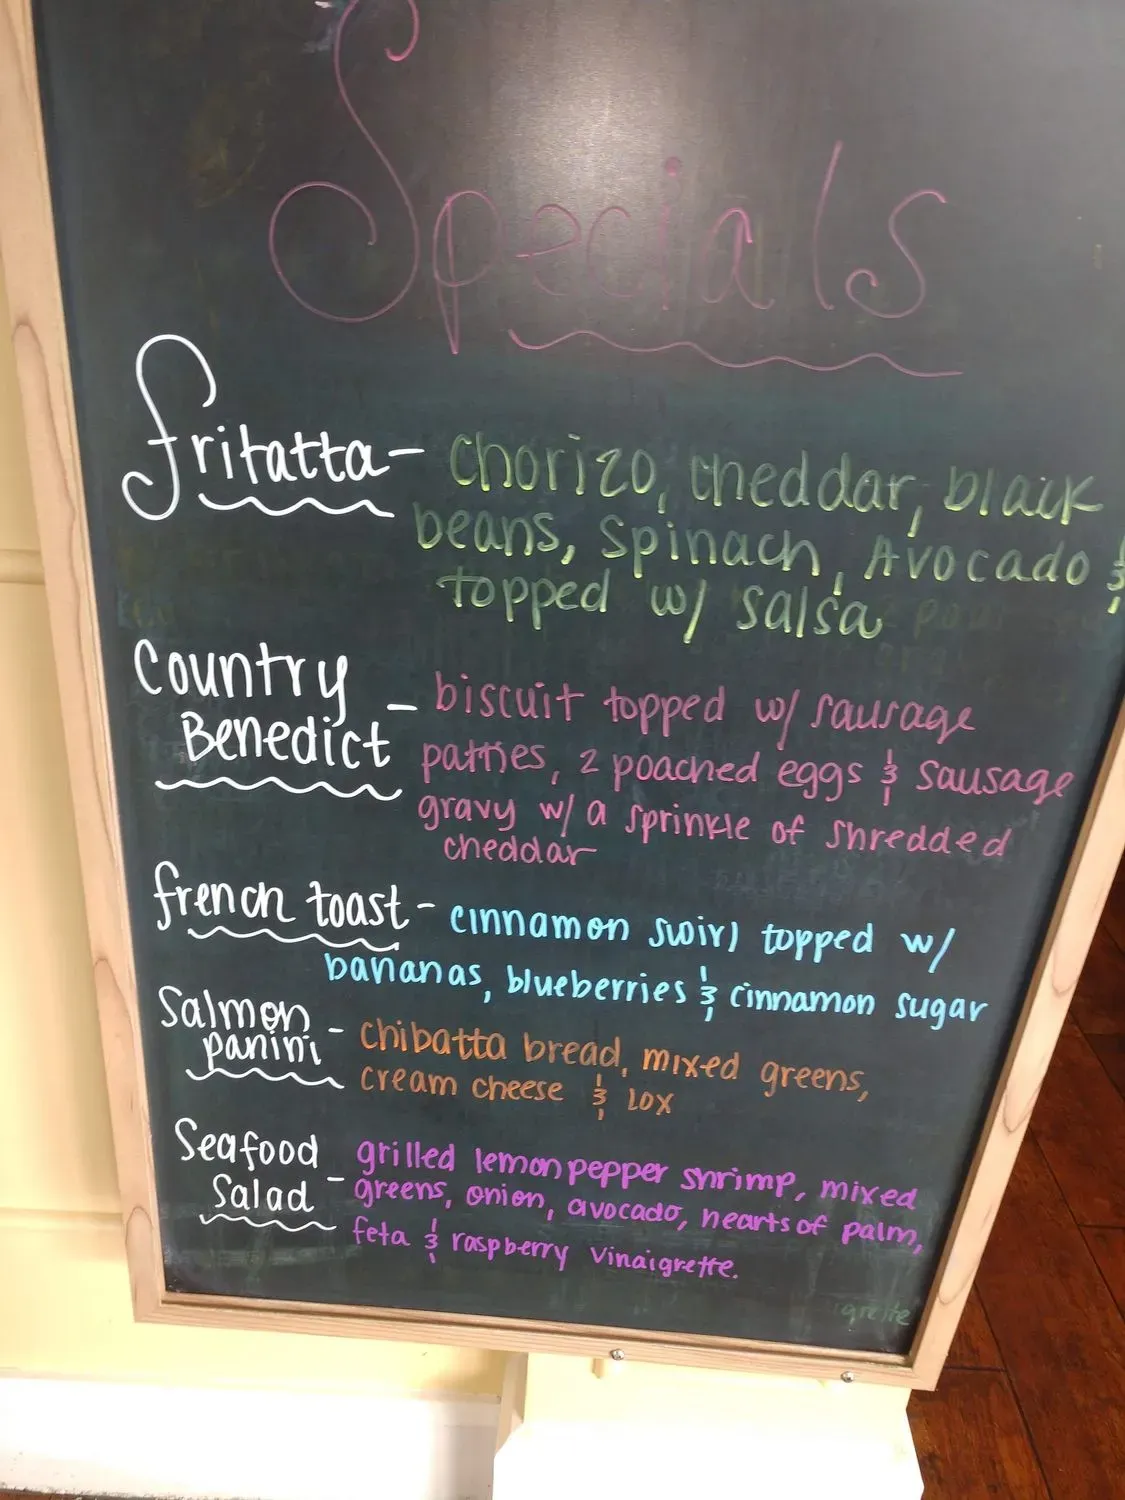 Specials
Fritatta - Chorizo, cheddar, black
beans, spinach, Avocado &
topped w/ salsa
Country
Benedict - biscuit topped w/ sausage
patties, 2 poached eggs & sausage
gravy w/ a sprinkle of shredded
cheddar
french toast - cinnamon swirl topped w/
bananas, blueberries & cinnamon sugar
Salmon
panini - chibatta bread, mixed greens,
cream cheese & lox
Seafood
Salad - grilled lemon pepper shrimp, mixed
greens, onion, avocado, hearts of palm,
feta & raspberry vinaigrette.